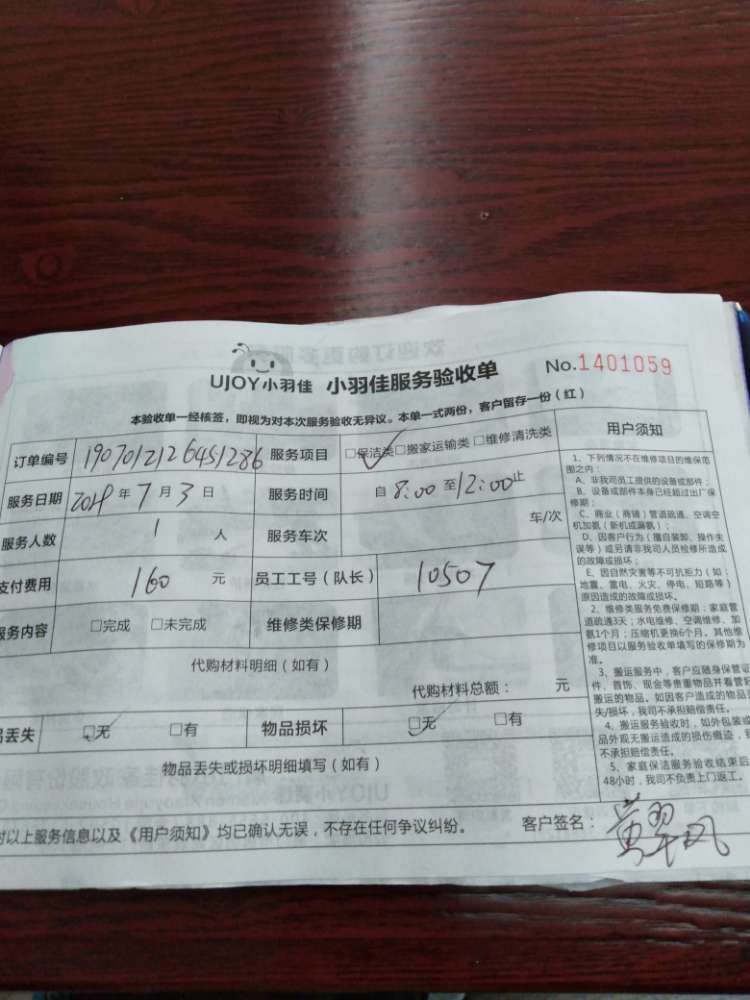 UJOY小羽佳 小羽佳服务验收单 No.1401059
本验收单一经核签，即视为对本次服务验收无异议。本单一式两份，客户留存一份（红）
订单编号 190701212645 1286 服务项目 □保洁类□搬家运输类□维修清洗类
服务日期 2019年7月3日 服务时间 自8:00至12:00止
服务人数 1 人 服务车次 车/次
支付费用 160 元 员工工号（队长） 10507
服务内容 □完成 □未完成 维修类保修期
代购材料明细（如有）
代购材料总额： 元
丢失 □无 □有 物品损坏 □无 □有
物品丢失或损坏明细填写（如有）
以上服务信息以及《用户须知》均已确认无误，不存在任何争议纠纷。 客户签名：
用户须知
1、下列情况不在维修项目的维保范
围之内：
A、非我司员工提供的设备或部件；
B、设备或部件本身已经超过出厂保
修期；
C、商业（商铺）管道疏通、空调空
机加氨（新机或漏氨）；
D、因客户行为（擅自装卸、操作失
误等）或另请非我司人员检修所造成
的故障或损坏；
E、因自然灾害等不可抗拒力（如：
地震、雷电、火灾、停电、短路等）
原因造成的故障或损坏。
2、维修类服务免费保修期：家庭管
道疏通3天；水电维修、空调维修、加
氨1个月；压缩机更换6个月。其他维
修项目以服务验收单填写的保修期为
准。
3、搬运服务中，客户应随身保管证
件、首饰、现金等贵重物品并看管好
搬运的物品。如因客户造成的物品丢
失/损坏，我司不承担赔偿责任。
4、搬运服务验收时，如外包装或
品外观无搬运造成的损伤痕迹，
不承担赔偿责任。
5、家庭保洁服务验收结束后
48小时，我司不负责上门返工。